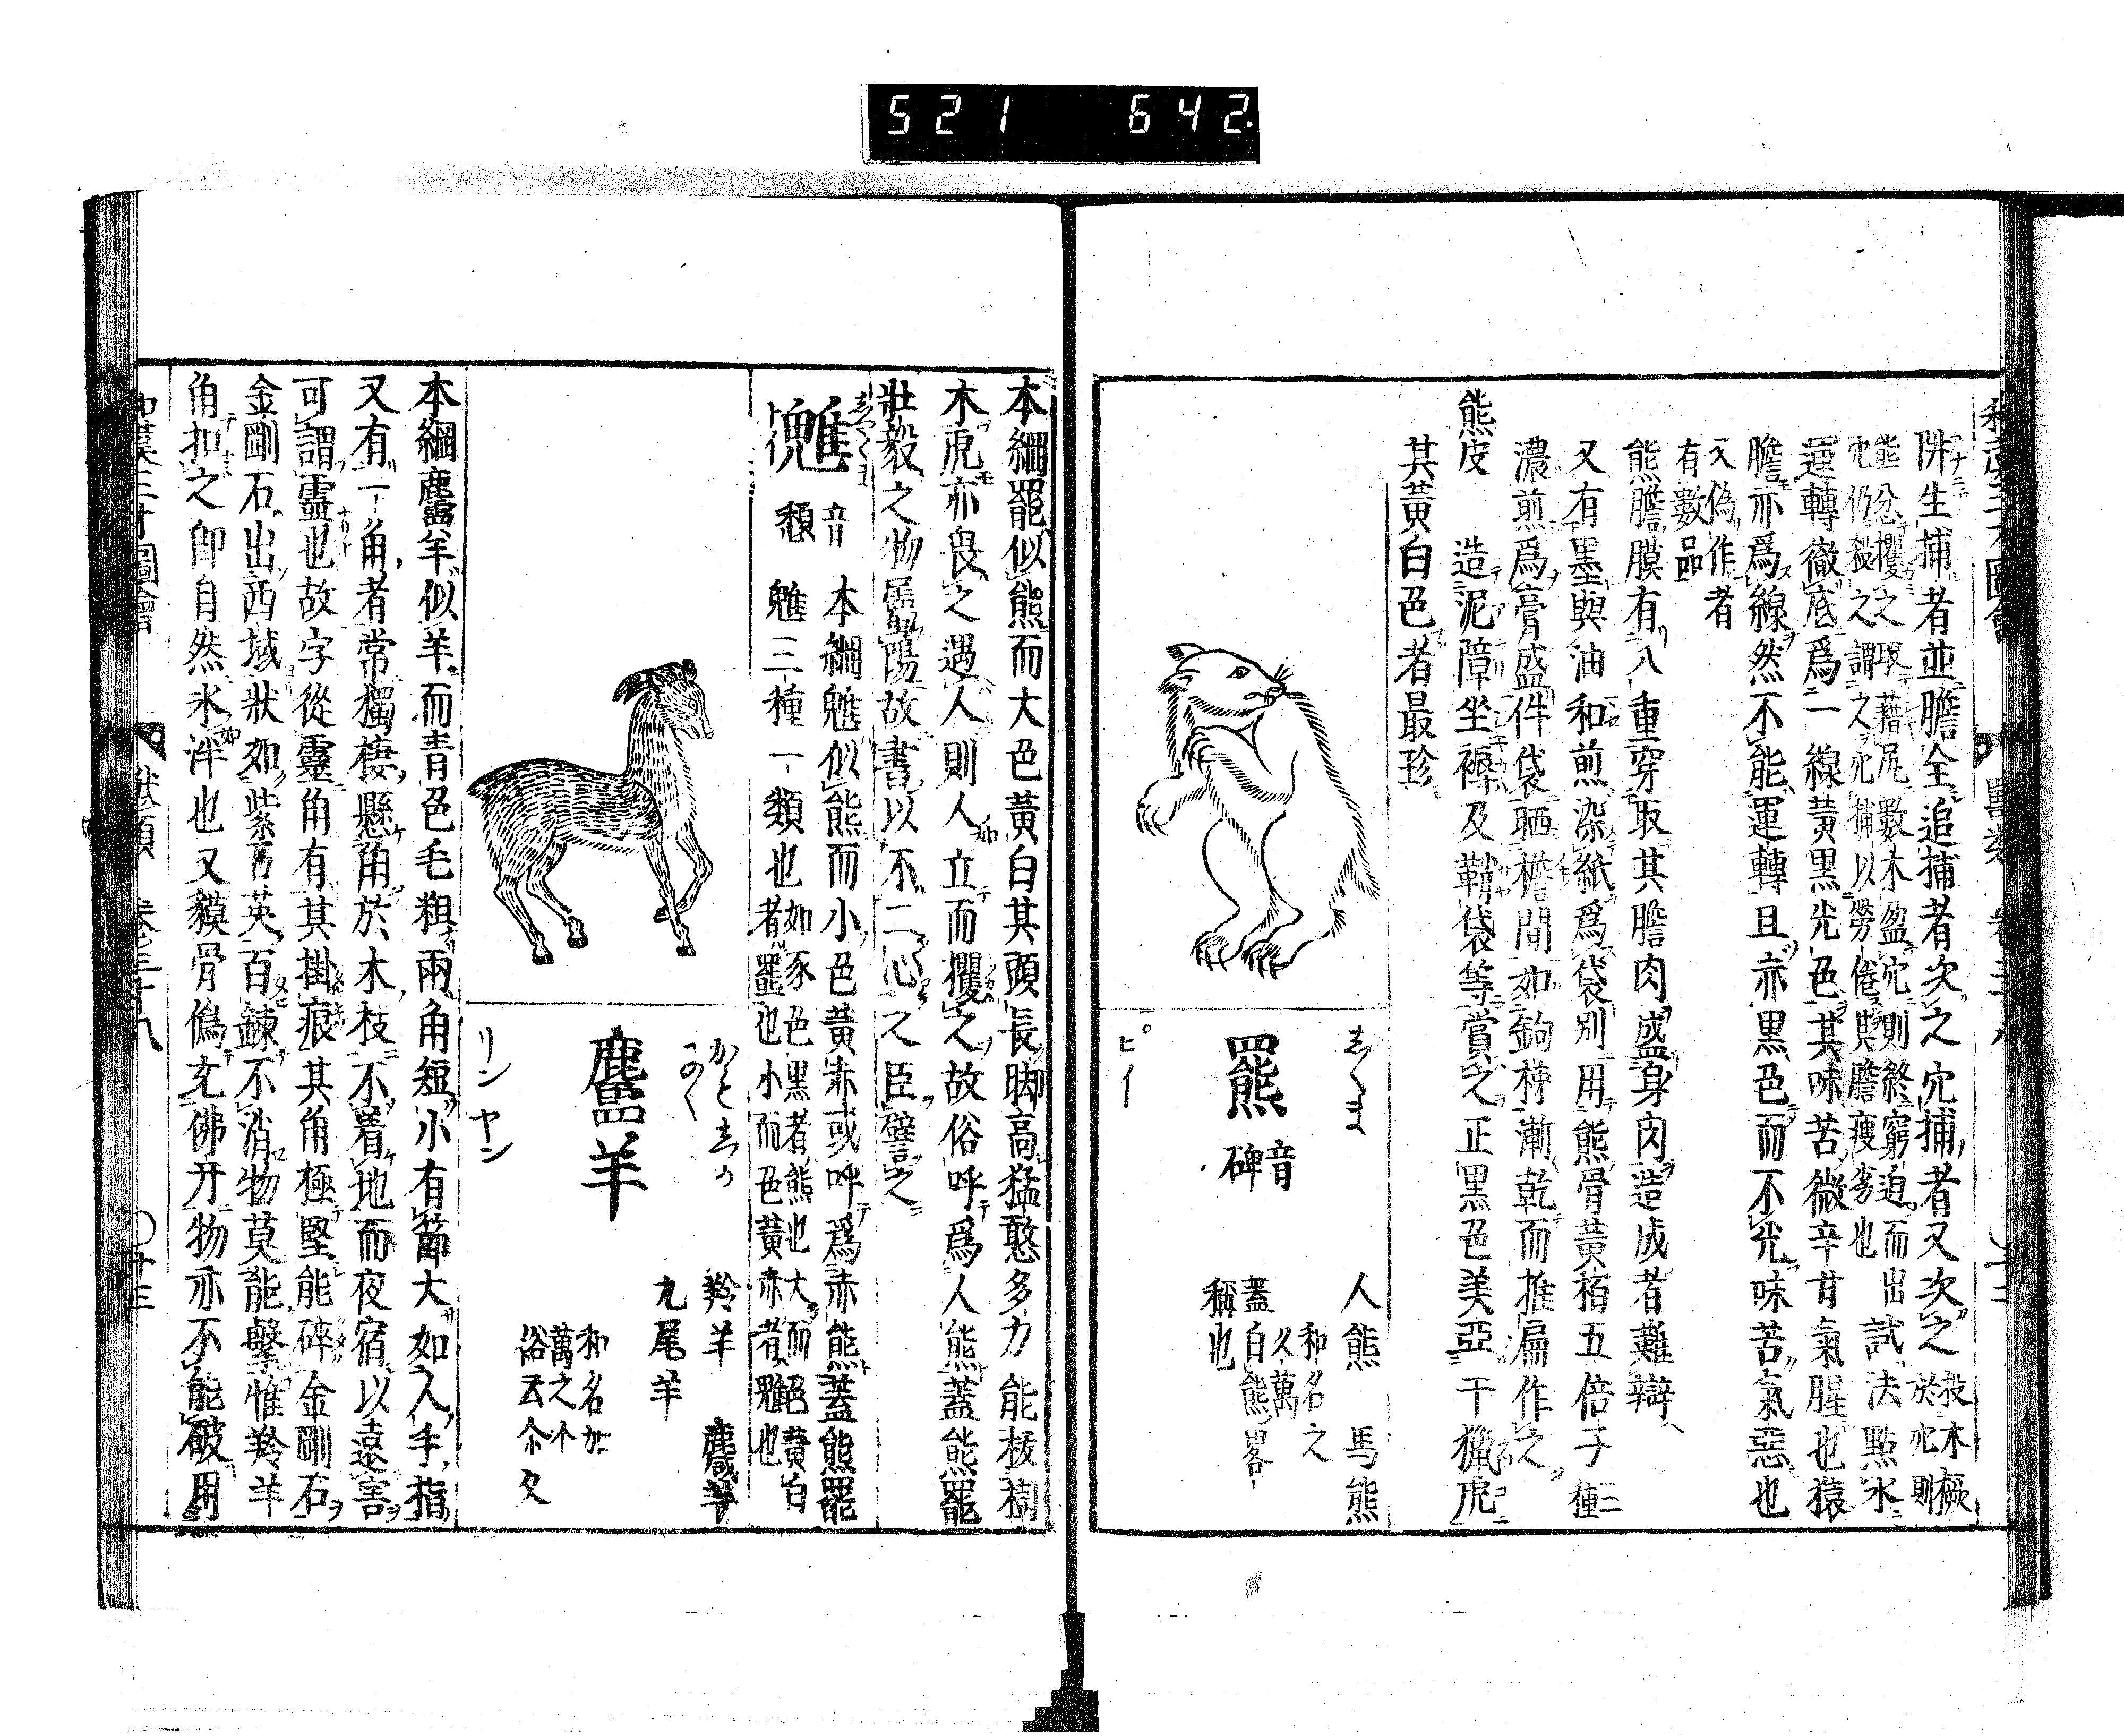 521 642.
阱生捕者並膽全追捕者次之穴捕者又次之
於穴則
熊忿攫之取藉尻數木盈穴則終窮迫而出
穴仍殺之謂之穴捕以勞倦其膽瘦劣也
試法點水
運轉徹底爲一線黃黑光色其味苦微辛甘氣腥也猿
膽亦爲線然不能運轉且亦黑色而不光味苦氣惡也
又偽作者
有數品
熊膽膜有八重穿取其膽肉盛身肉造成者難辯
又有墨與油和煎染紙爲袋別用熊骨黃栢五倍子
二種
濃煎爲膏盛件袋晒檐間如鉤棒漸乾而推扁作之
熊皮 造泥障坐褥及鞘袋等賞之正黑色美亞于獵虎
其黃白色者最珍
羆
音
碑
しくま
ピイ
人熊 馬熊
和名之
久萬
蓋白熊畧
稱也
本綱羆似熊而大色黃白其頭長脚高猛憨多力能拔樹
木虎亦畏之遇人則人立而攫之故俗呼爲人熊蓋熊羆
壯毅之物屬陽故書以不二心之臣譬之
魋
音
頽
本綱魋似熊而小色黃赤或呼爲赤熊蓋熊羆
魋三種一類也
如豕色黑者熊也大而色黃白
者羆也小而色黃赤者魋也
麢羊
かもしか
にく
リンヤン
羚羊 麙羊
九尾羊
和名加
萬之个
俗云尒久
本綱麢羊似羊而青色毛粗兩角短小有節大如人手指
又有一角者常獨棲懸角於木枝不着地而夜宿以遠害
可謂靈也故字從靈角有其掛痕其角極堅能碎金剛石
金剛石出西域狀如紫石英百鍊不消物莫能擊惟羚羊
角扣之卽自然氷泮也又貘骨僞充佛牙物亦不能破用
和漢三才圖會 獸類 卷三十八 〇十三